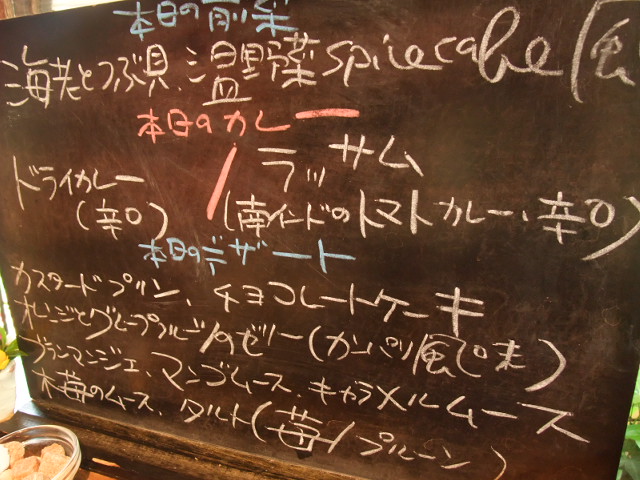 本日の前菜
海老とつぶ貝、温野菜 spice cake (風
本日のカレー
ドライカレー / ラッサム
(辛口) (南インドのトマトカレー、辛口)
本日のデザート
カスタードプリン、チョコレートケーキ
オレンジとグレープフルーツのゼリー(カンパリ風味)
ブランマンジェ、マンゴムース、キャラメルムース
木苺のムース、タルト(苺/プルーン)